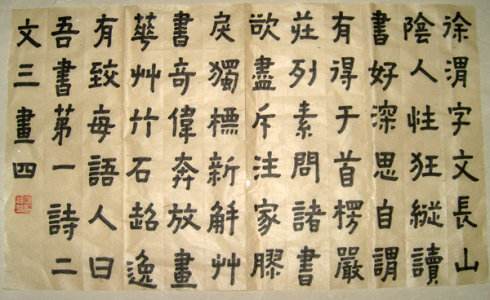 徐渭字文長山
陰人性狂縱讀
書好深思自謂
有得于首楞嚴
莊列素問諸書
欲盡斥注家膠
戾獨標新觧艸
書奇偉奔放畫
華艸竹石超逸
有致每語人曰
吾書第一詩二
文三畫四